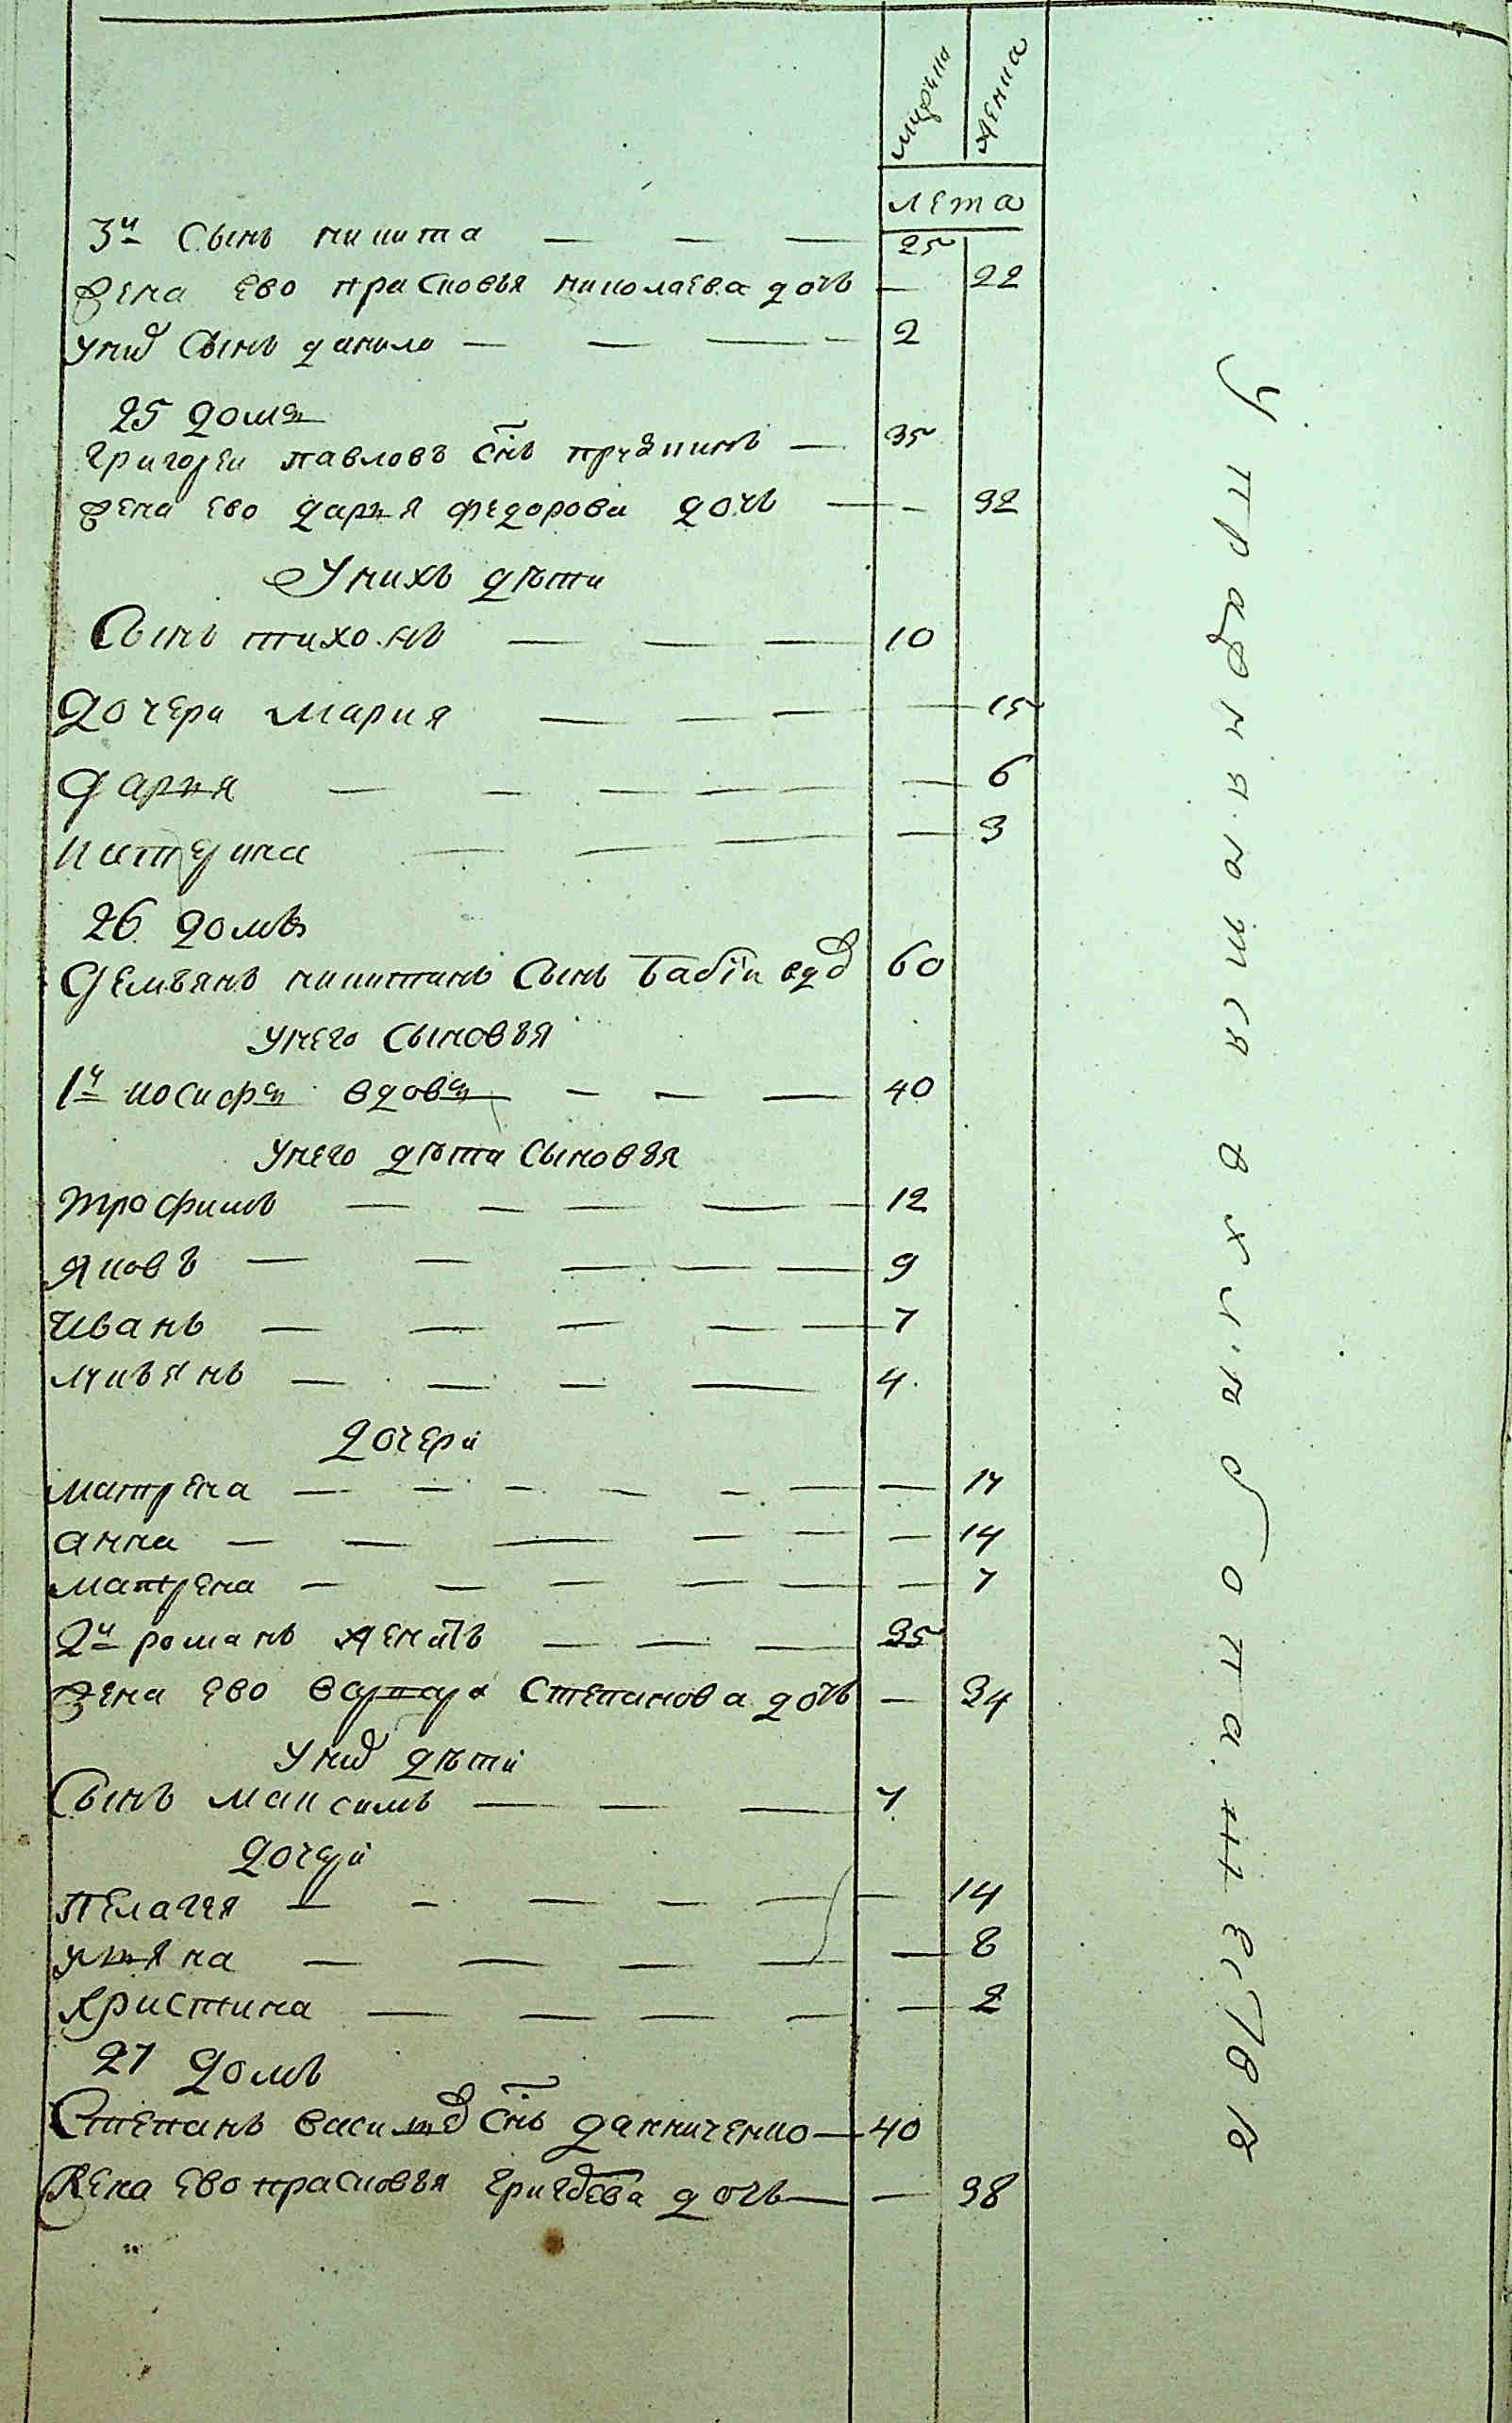 мужска женска
лета
3й Сынъ никита — — — 25
жена ево прасковья николаева дочь — 22
уних Сынъ данило — — — 2
25 домъ
григорей павловъ снъ — 35
жена ево дарья федорова дочь — 32
Унихъ дѣти
Сынъ тихонъ — — — 10
Дочери мария — — — 15
дарья — — — — — 6
катерина — — — — 3
26 домъ
Демьянъ никитинъ Сынъ бабін вдов 60
унего Сыновъя
1й иосифъ вдовъ — — — 40
унего дѣти Сыновъя
трофимъ — — — — — 12
яковъ — — — — — 9
Иванъ — — — — — 7
лукьянъ — — — — 4
Дочери
матрена — — — — — — — 17
анна — — — — — — 14
матрена — — — — — — 7
2й романъ женатъ — — — 35
жена ево варвара Степанова дочь — 34
Уних дѣти
Сынъ максимъ — — — 7
Дочери
Пелагея — — — — — — 14
ульяна — — — — — 8
Христина — — — — — 2
27 Домъ
Степанъ василев снъ данниченко — 40
Жена ево прасковъя григорева дочь — — 38
Упражняются в хлѣбопашествѣ